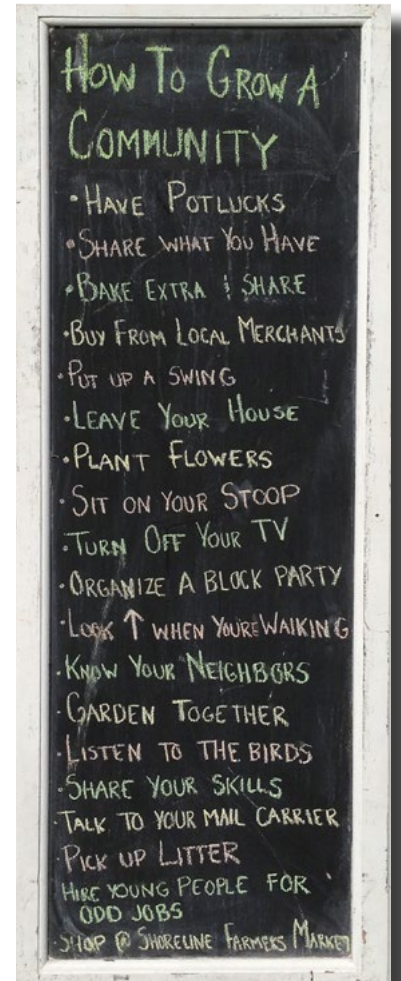 How To Grow A
Community
• Have Potlucks
• Share what You Have
• Bake Extra & Share
• Buy From Local Merchants
• Put up a swing
• Leave Your House
• Plant Flowers
• Sit on Your Stoop
• Turn Off Your TV
• Organize a Block Party
• Look ↑ when you're walking
• Know Your Neighbors
• Garden Together
• Listen to the birds
• Share Your Skills
• Talk to your mail carrier
• Pick up Litter
Hire young People for
odd jobs
• Shop @ Shoreline Farmers Market